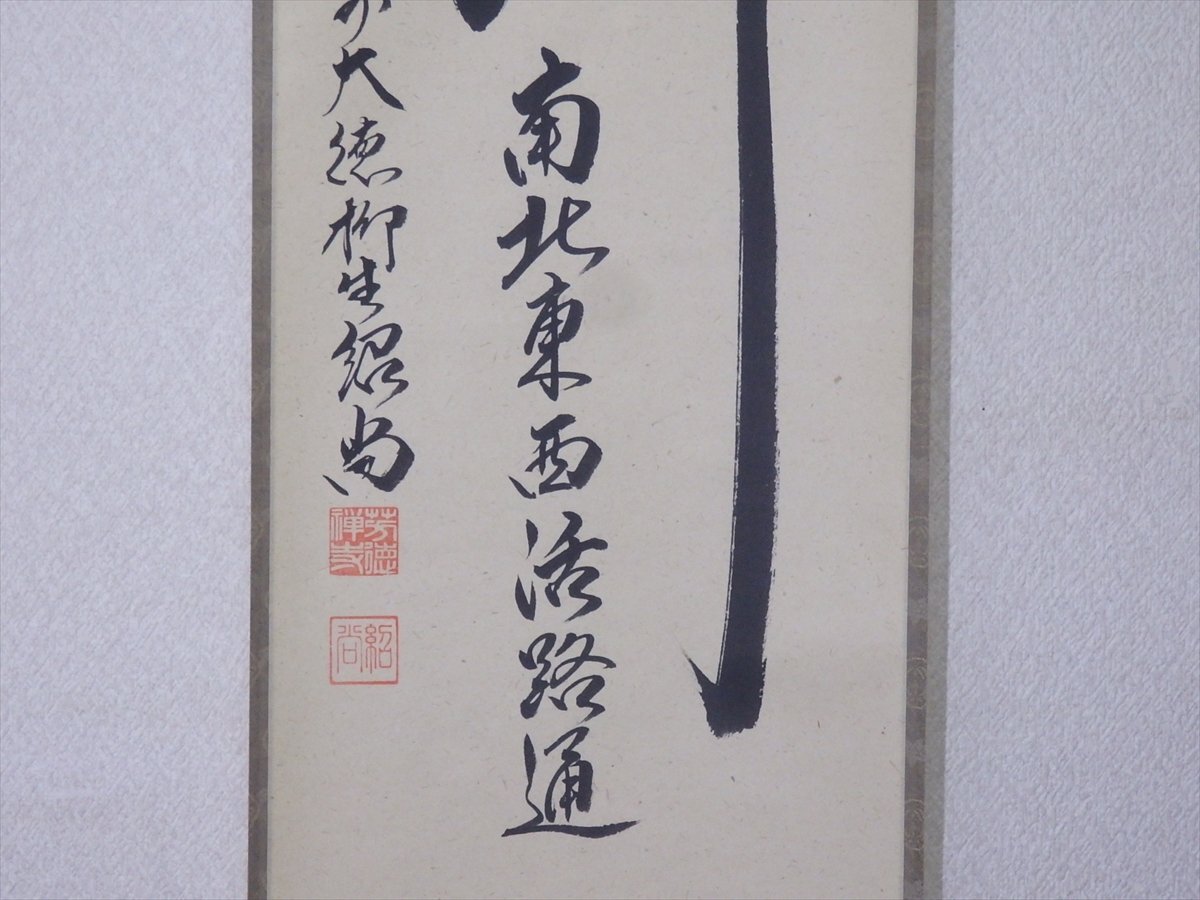 南北東西活路通
大徳柳生紹尚
芳徳禅寺
紹尚